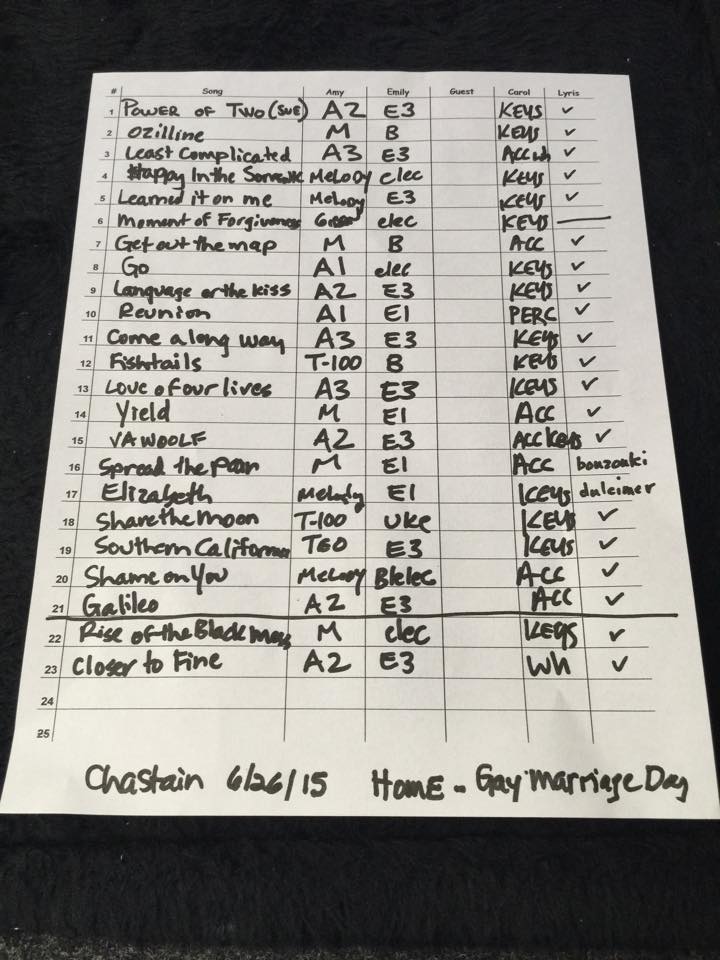 # Song Amy Emily Guest Carol Lyris
1 Power of Two (SUE) A2 E3 KEYS ✓
2 Ozilline M B KEYS ✓
3 Least Complicated A3 E3 Acc wh ✓
4 Happy In the Melody elec KEYS ✓
5 Learned it on me Melody E3 KEYS ✓
6 Moment of Forgiveness elec KEYS —
7 Get out the map M B ACC ✓
8 Go A1 elec KEYS ✓
9 Language or the kiss A2 E3 KEYS ✓
10 Reunion A1 E1 PERC ✓
11 Come a long way A3 E3 KEYS ✓
12 Fishtails T-100 B KEYS ✓
13 Love of our lives A3 E3 KEYS ✓
14 Yield M E1 Acc ✓
15 VA WOOLF A2 E3 Acc Keys ✓
16 Spread the Pain M E1 Acc bouzouki
17 Elizabeth Melody E1 KEYS dulcimer
18 Share the Moon T-100 Uke KEYS ✓
19 Southern California T60 E3 KEYS ✓
20 Shame on You Melody B/elec Acc ✓
21 Galileo A2 E3 Acc ✓
22 Rise of the Black Mess M elec KEYS ✓
23 Closer to Fine A2 E3 Wh ✓
24
25
Chastain 6/26/15 HOME - Gay Marriage Day